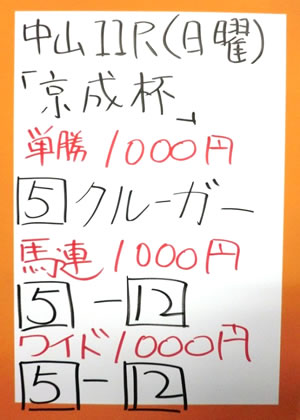 中山11R(日曜)
「京成杯」
単勝1000円
5クルーガー
馬連1000円
5-12
ワイド1000円
5-12